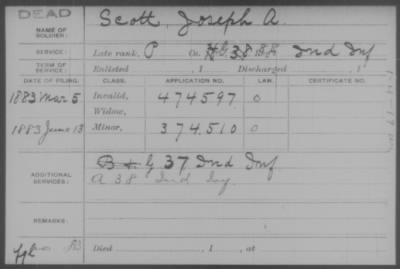 DEAD
NAME OF SOLDIER: Scott, Joseph A.
SERVICE: Late rank, P Co. 38 Ind Inf
TERM OF SERVICE: Enlisted , 1 Discharged , 1
DATE OF FILING. CLASS. APPLICATION NO. LAW. CERTIFICATE NO.
1883 Mar 5 Invalid, 474597 0
Widow,
1883 June 13 Minor, 374.510 0
ADDITIONAL SERVICES: B & G 37 Ind Inf
A 38 Ind Inf
REMARKS:
Died , 1 , at